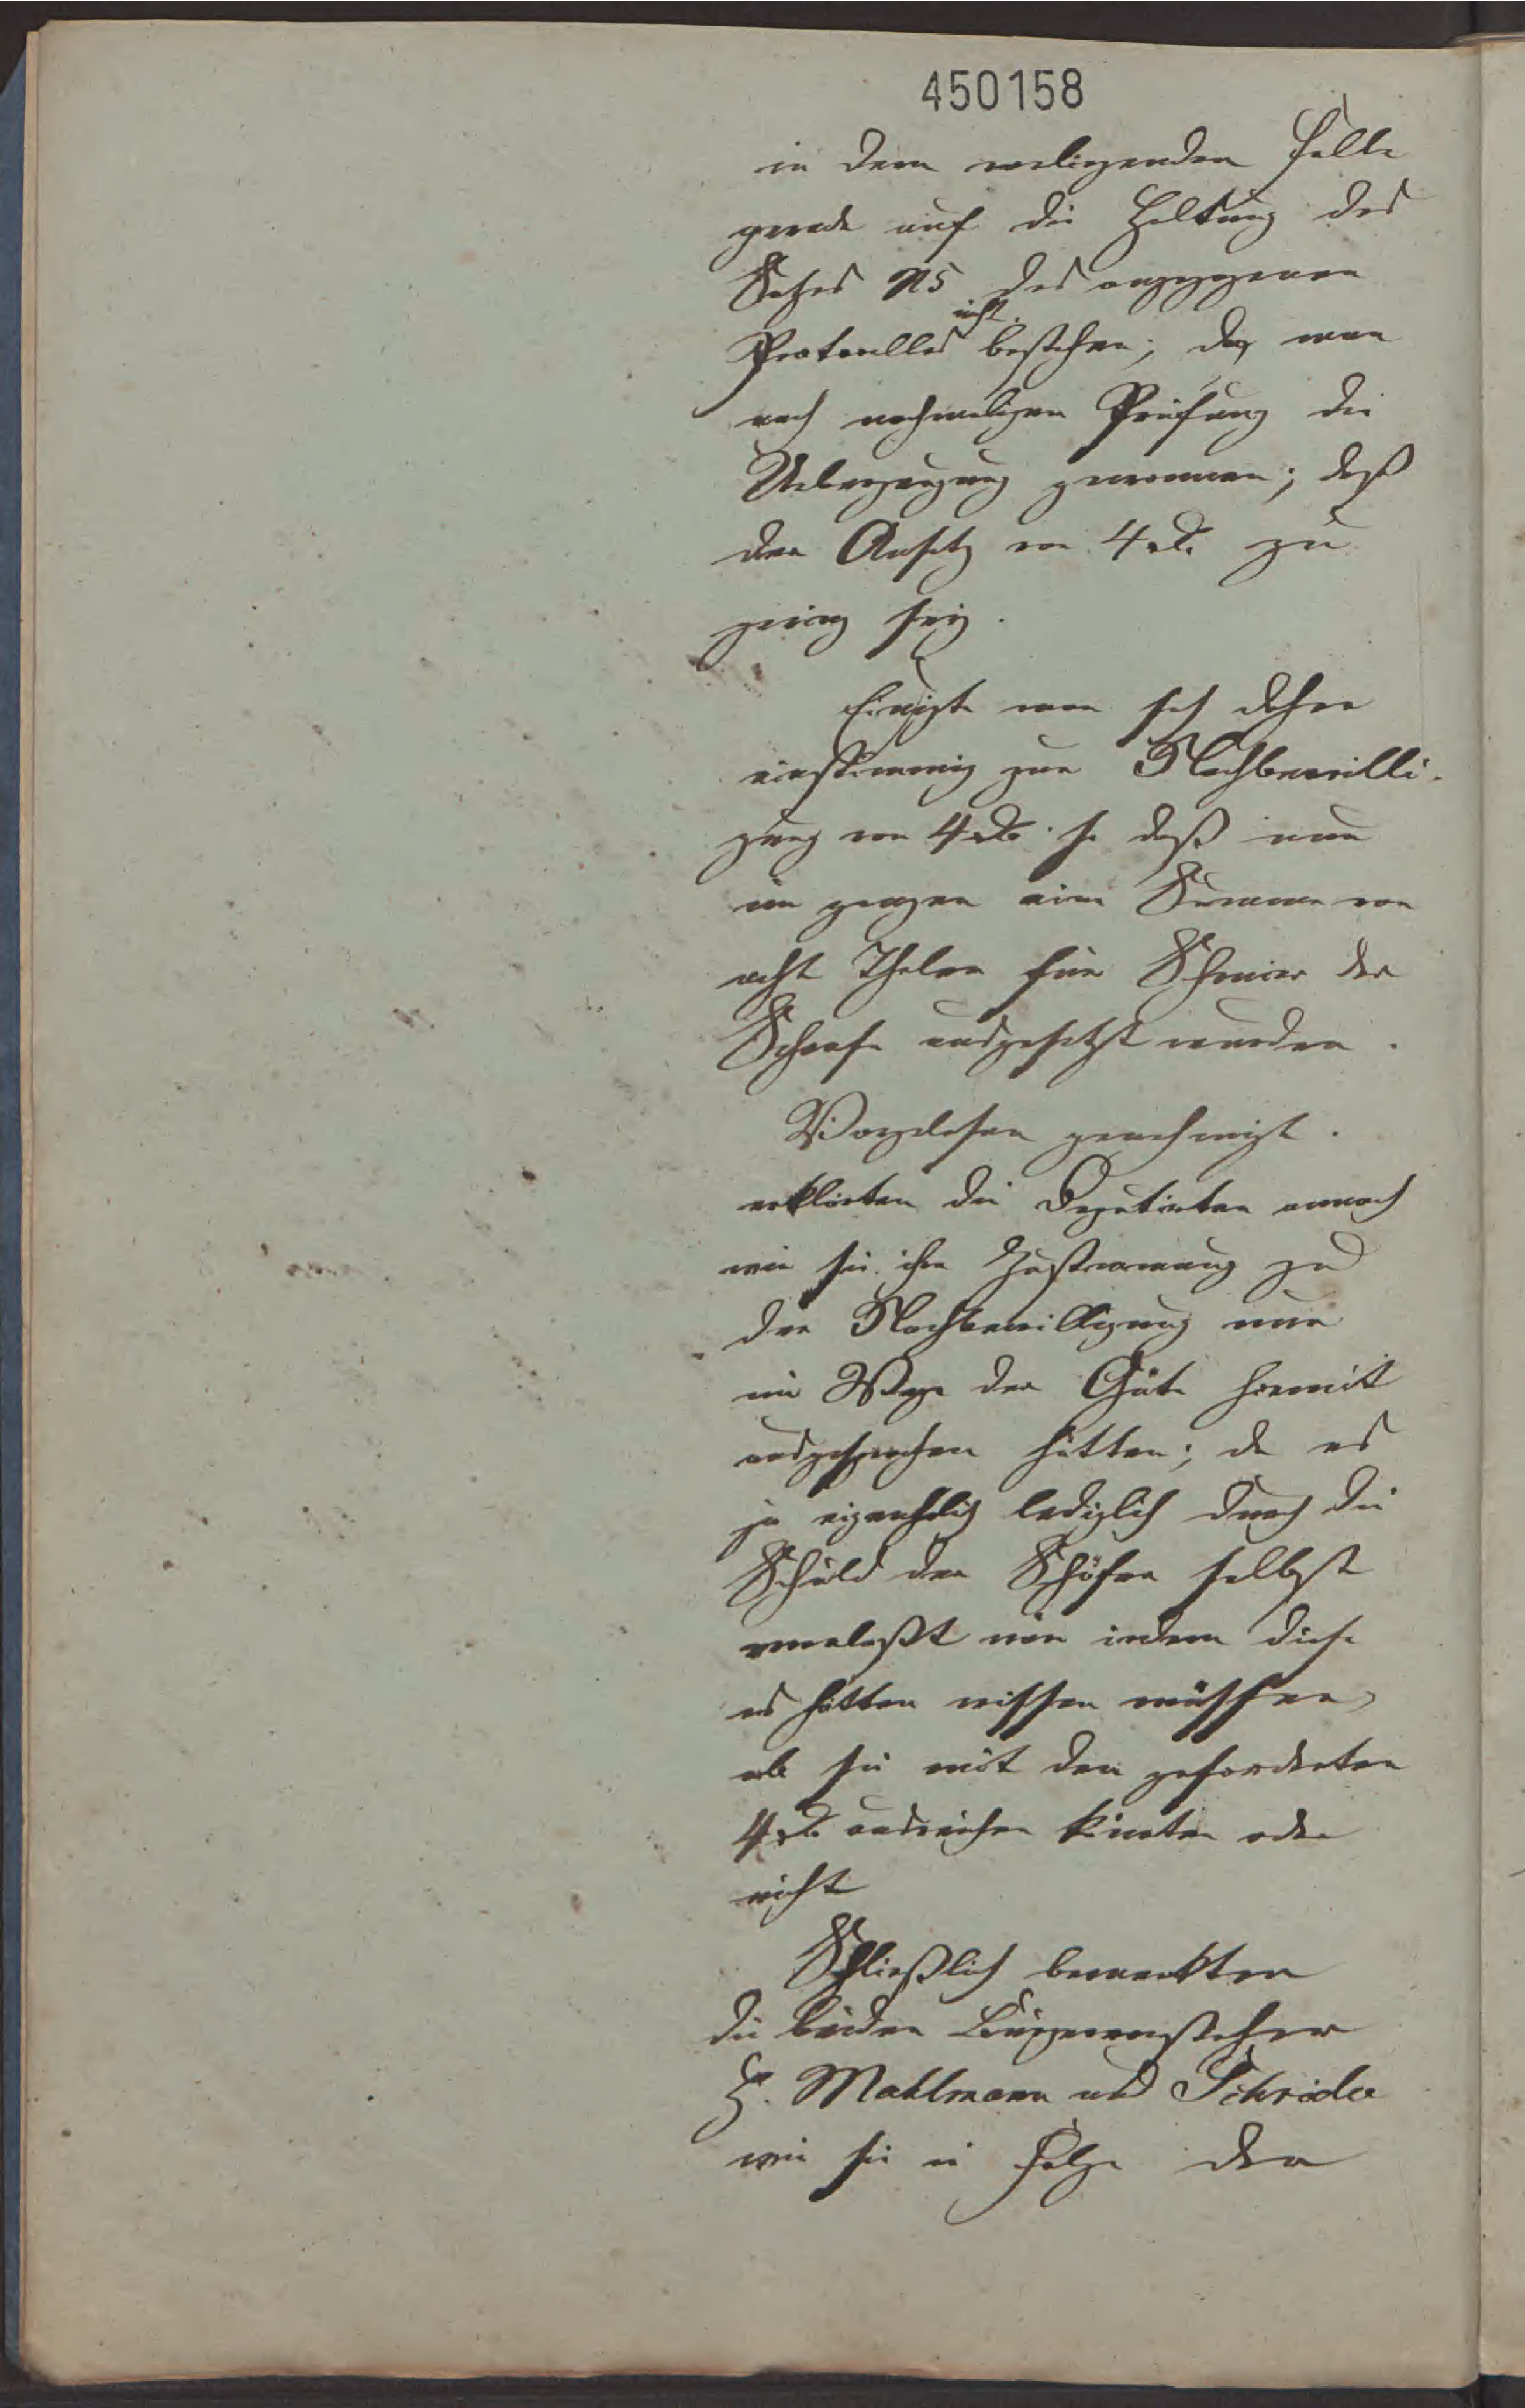 450158
in dem vorliegenden Falle
gerade auf die Haltung des
Satzes N5 des angezogenen
nicht
Protocolles bestehen; da man
nach nochmaliger Prüfung die
Ueberzeugung gewonnen; daß
der Ansatz von 4 rℓ. zu
gering sey.
Einigte man sich daher
einstimmig zur Nachbewilli-
gung von 4 rℓ. so daß nun
im ganzen eine Summe von
acht Thaler für Schmier der
Schaafe ausgesetzt worden.
Vorgelesen genehmigt.
erklärten die Deputirten annoch
wie sie ihre Zustimmung zu
der Nachbewilligung nur
im Wege der Güte hiermit
ausgesprochen hätten; da es
ja eigentlich lediglich durch die
Schuld der Schäfer selbst
veranlaßt indem diese
es hätten wissen müssen,
ob sie mit den geforderten
4 rℓ. ausreichen könnten oder
nicht
Schließlich bemerkten
die beiden Bürgervorsteher
H. Mahlmann und Schrider
wie sie in Folge der